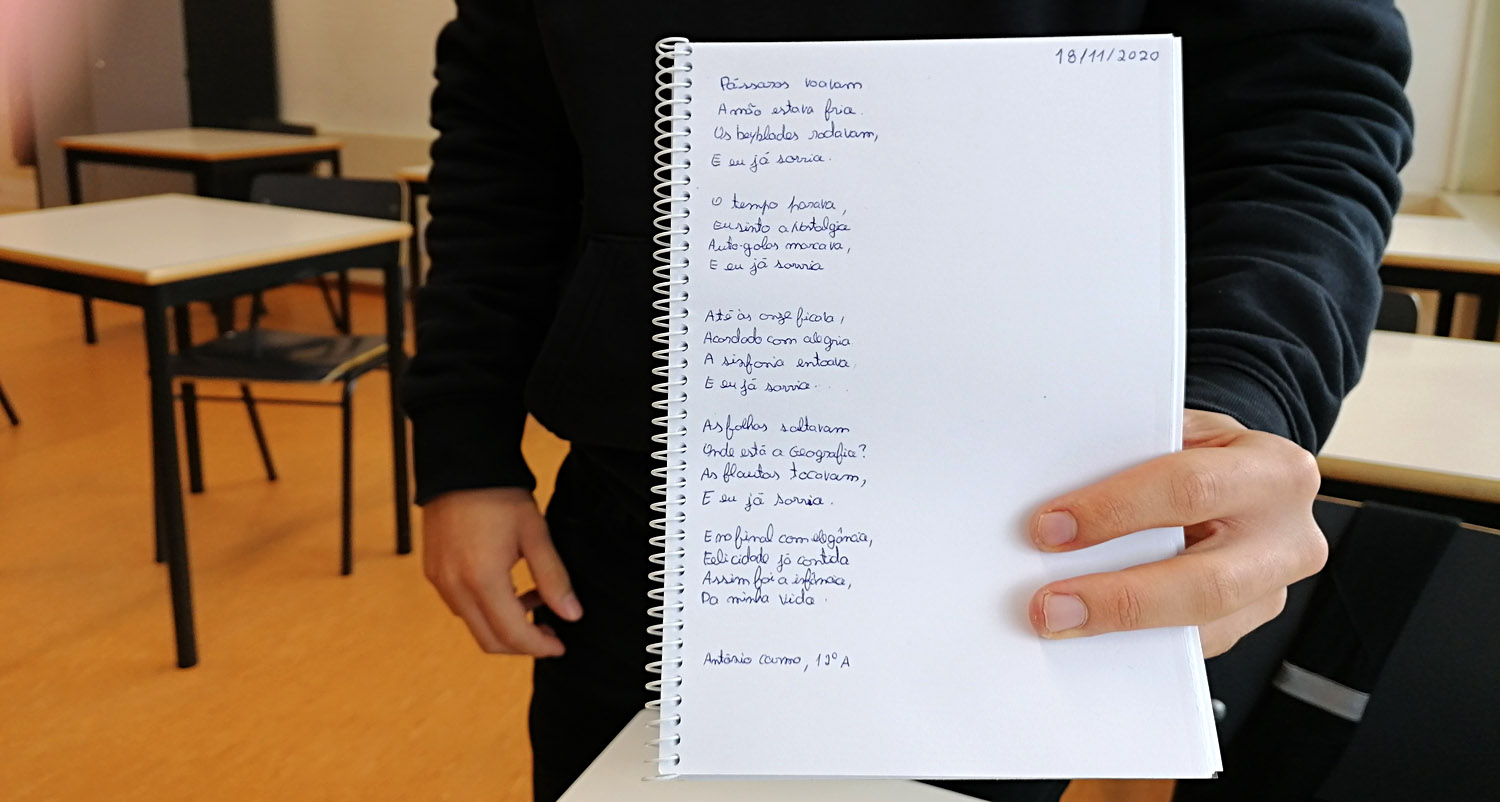 18/11/2020
Pássaros voavam
A mão estava fria.
Os beyblades rodavam,
E eu já sorria.
O tempo parava,
Eu sinto a Nostalgia
Auto-golos marcava,
E eu já sorria
Até às onze ficava,
Acordado com alegria
A sinfonia entoava.
E eu já sorria.
As folhas saltavam
Onde está a Geografia?
As flautas tocavam,
E eu já sorria.
E no final com elegância,
Felicidade já contida
Assim foi a infância,
Da minha vida.
António Carmo, 12º A